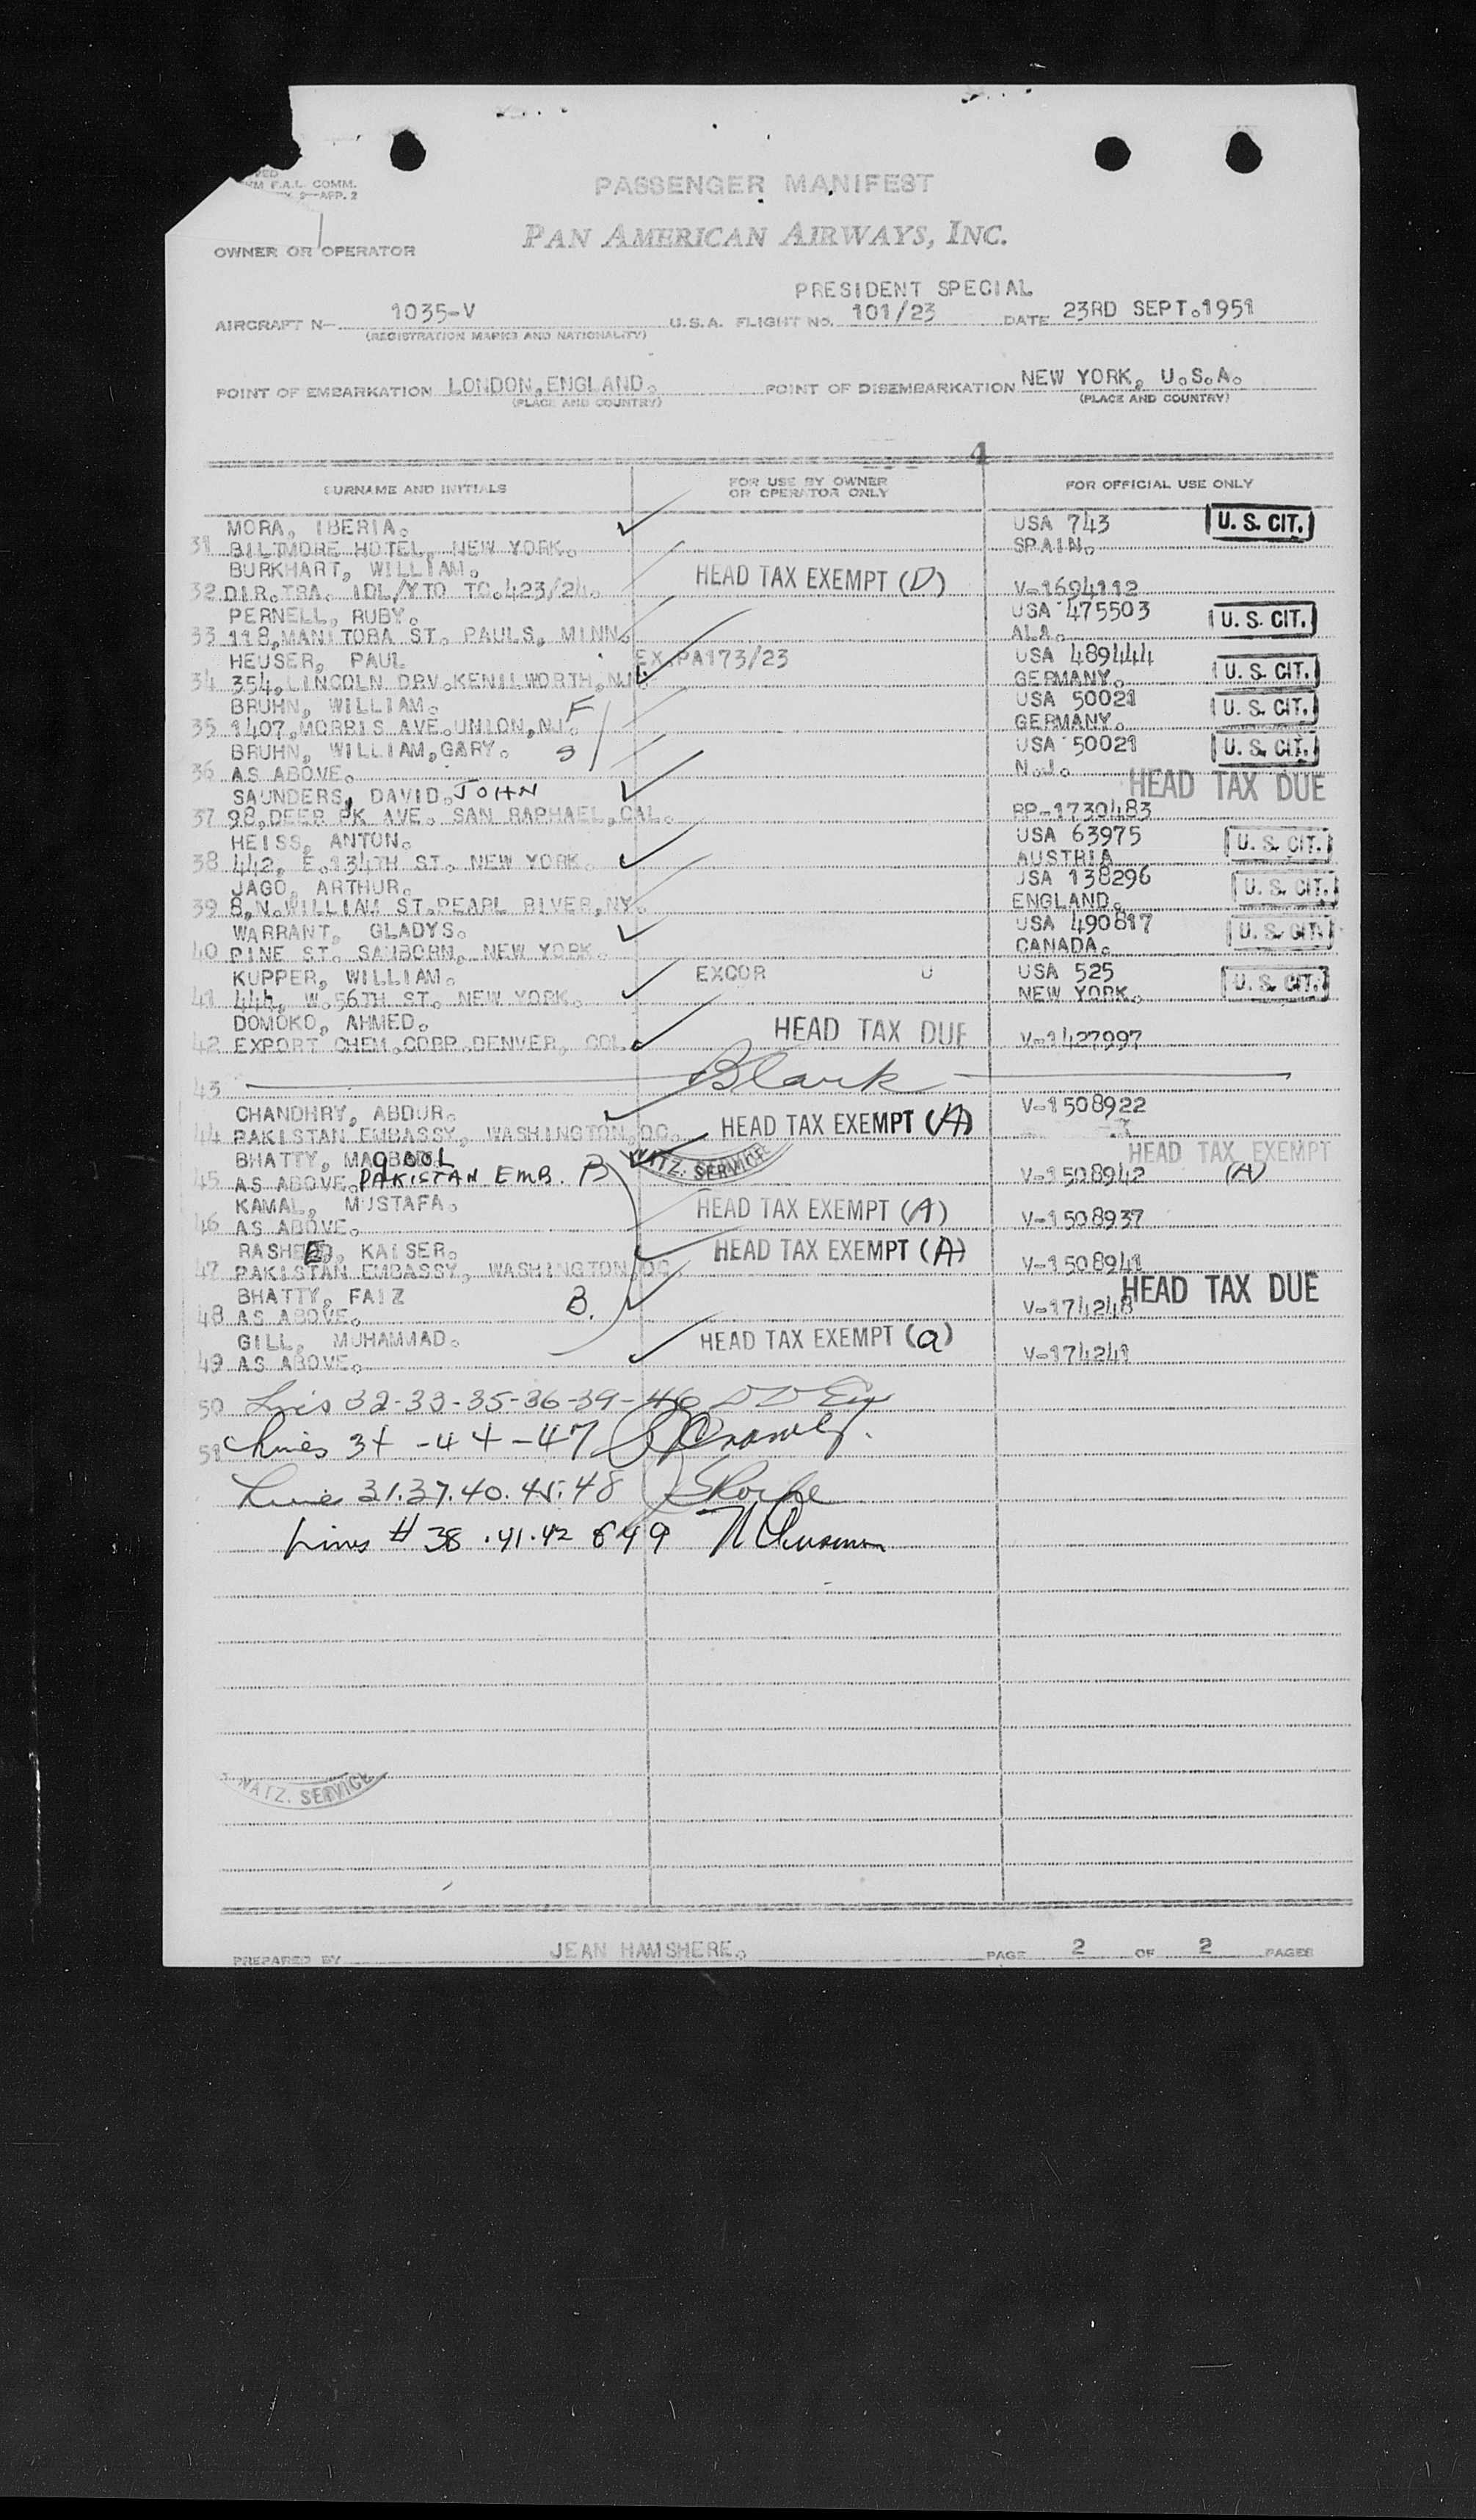 F.A.L. COMM.
APP. 2
PASSENGER MANIFEST
PAN AMERICAN AIRWAYS, INC.
OWNER OR OPERATOR
PRESIDENT SPECIAL
AIRCRAFT N- 1035-V U.S.A. FLIGHT NO. 101/23 DATE 23RD SEPT.1951
(REGISTRATION MARKS AND NATIONALITY)
POINT OF EMBARKATION LONDON,ENGLAND. POINT OF DISEMBARKATION NEW YORK, U.S.A.
(PLACE AND COUNTRY) (PLACE AND COUNTRY)
4
SURNAME AND INITIALS FOR USE BY OWNER OR OPERATOR ONLY FOR OFFICIAL USE ONLY
MORA, IBERIA. USA 743 U. S. CIT.
31 BILTMORE HOTEL, NEW YORK. SPAIN.
BURKHART, WILLIAM. HEAD TAX EXEMPT (D)
32 DIR.TRA. IDL/YTO TC.423/24. V-1694112
PERNELL, RUBY. USA 475503 U. S. CIT.
33 118,MANITOBA ST. PAULS, MINN. ALA.
HEUSER, PAUL EX.PA173/23 USA 489444 U. S. CIT.
34 354,LINCOLN DRV.KENILWORTH,NJ. GERMANY.
BRUHN, WILLIAM. F USA 50021 U. S. CIT.
35 1407,MORRIS AVE.UNION,NJ. GERMANY.
BRUHN, WILLIAM,GARY. S USA 50021 U. S. CIT.
36 AS ABOVE. N.J.
SAUNDERS, DAVID. JOHN HEAD TAX DUE
37 98,DEER PK AVE. SAN RAPHAEL,CAL. RP-1730483
HEISS, ANTON. USA 63975 U. S. CIT.
38 442, E.134TH ST. NEW YORK. AUSTRIA
JAGO, ARTHUR. USA 138296 U. S. CIT.
39 8,N.WILLIAM ST.PEARL RIVER,NY. ENGLAND.
WARRANT, GLADYS. USA 490817 U. S. CIT.
40 PINE ST. SANBORN, NEW YORK. CANADA.
KUPPER, WILLIAM. EXCOR U USA 525 U. S. CIT.
41 444, W.56TH ST. NEW YORK. NEW YORK.
DOMOKO, AHMED. HEAD TAX DUE
42 EXPORT CHEM.CORP.DENVER, COL. V-1427997
43 Blank
CHANDHRY, ABDUR. HEAD TAX EXEMPT (A) V-1508922
44 PAKISTAN EMBASSY, WASHINGTON,DC.
BHATTY, MAQBOOL NATZ. SERVICE HEAD TAX EXEMPT
45 AS ABOVE. PAKISTAN EMB. B V-1508942 (A)
KAMAL, MUSTAFA. HEAD TAX EXEMPT (A)
46 AS ABOVE. V-1508937
RASHEED, KAISER. HEAD TAX EXEMPT (A)
47 PAKISTAN EMBASSY, WASHINGTON,DC V-1508941
BHATTY, FAIZ B. HEAD TAX DUE
48 AS ABOVE. V-174248
GILL, MUHAMMAD. HEAD TAX EXEMPT (a)
49 AS ABOVE. V-174241
50 Lines 32-33-35-36-39-46
51 Lines 34-44-47
Lines 31.37.40.45.48
Lines # 38 .41.42 & 49
NATZ. SERVICE
PREPARED BY JEAN HAMSHERE. PAGE 2 OF 2 PAGES